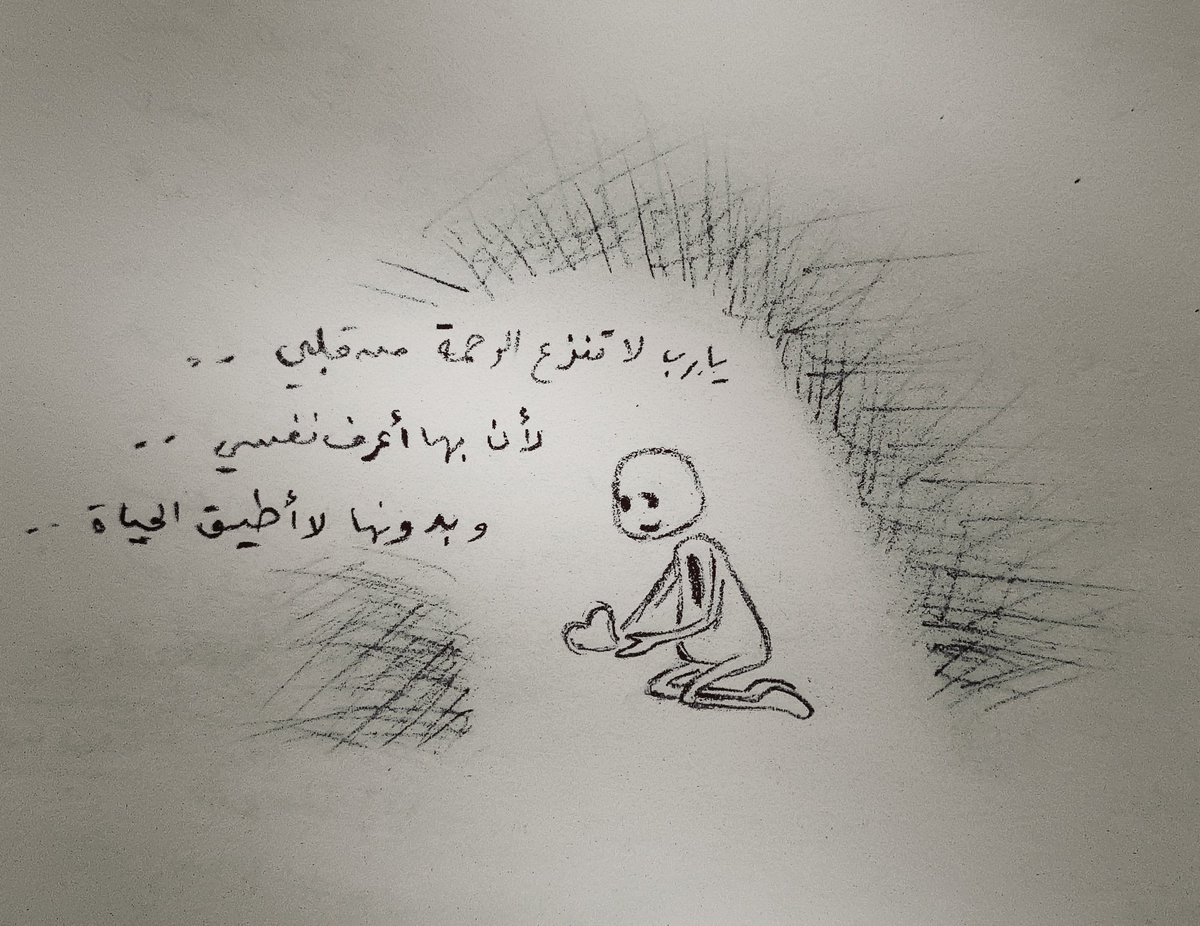 يارب لا تنزع الرحمة من قلبي ..
لأن بها أعرف نفسي ..
وبدونها لا أطيق الحياة ..